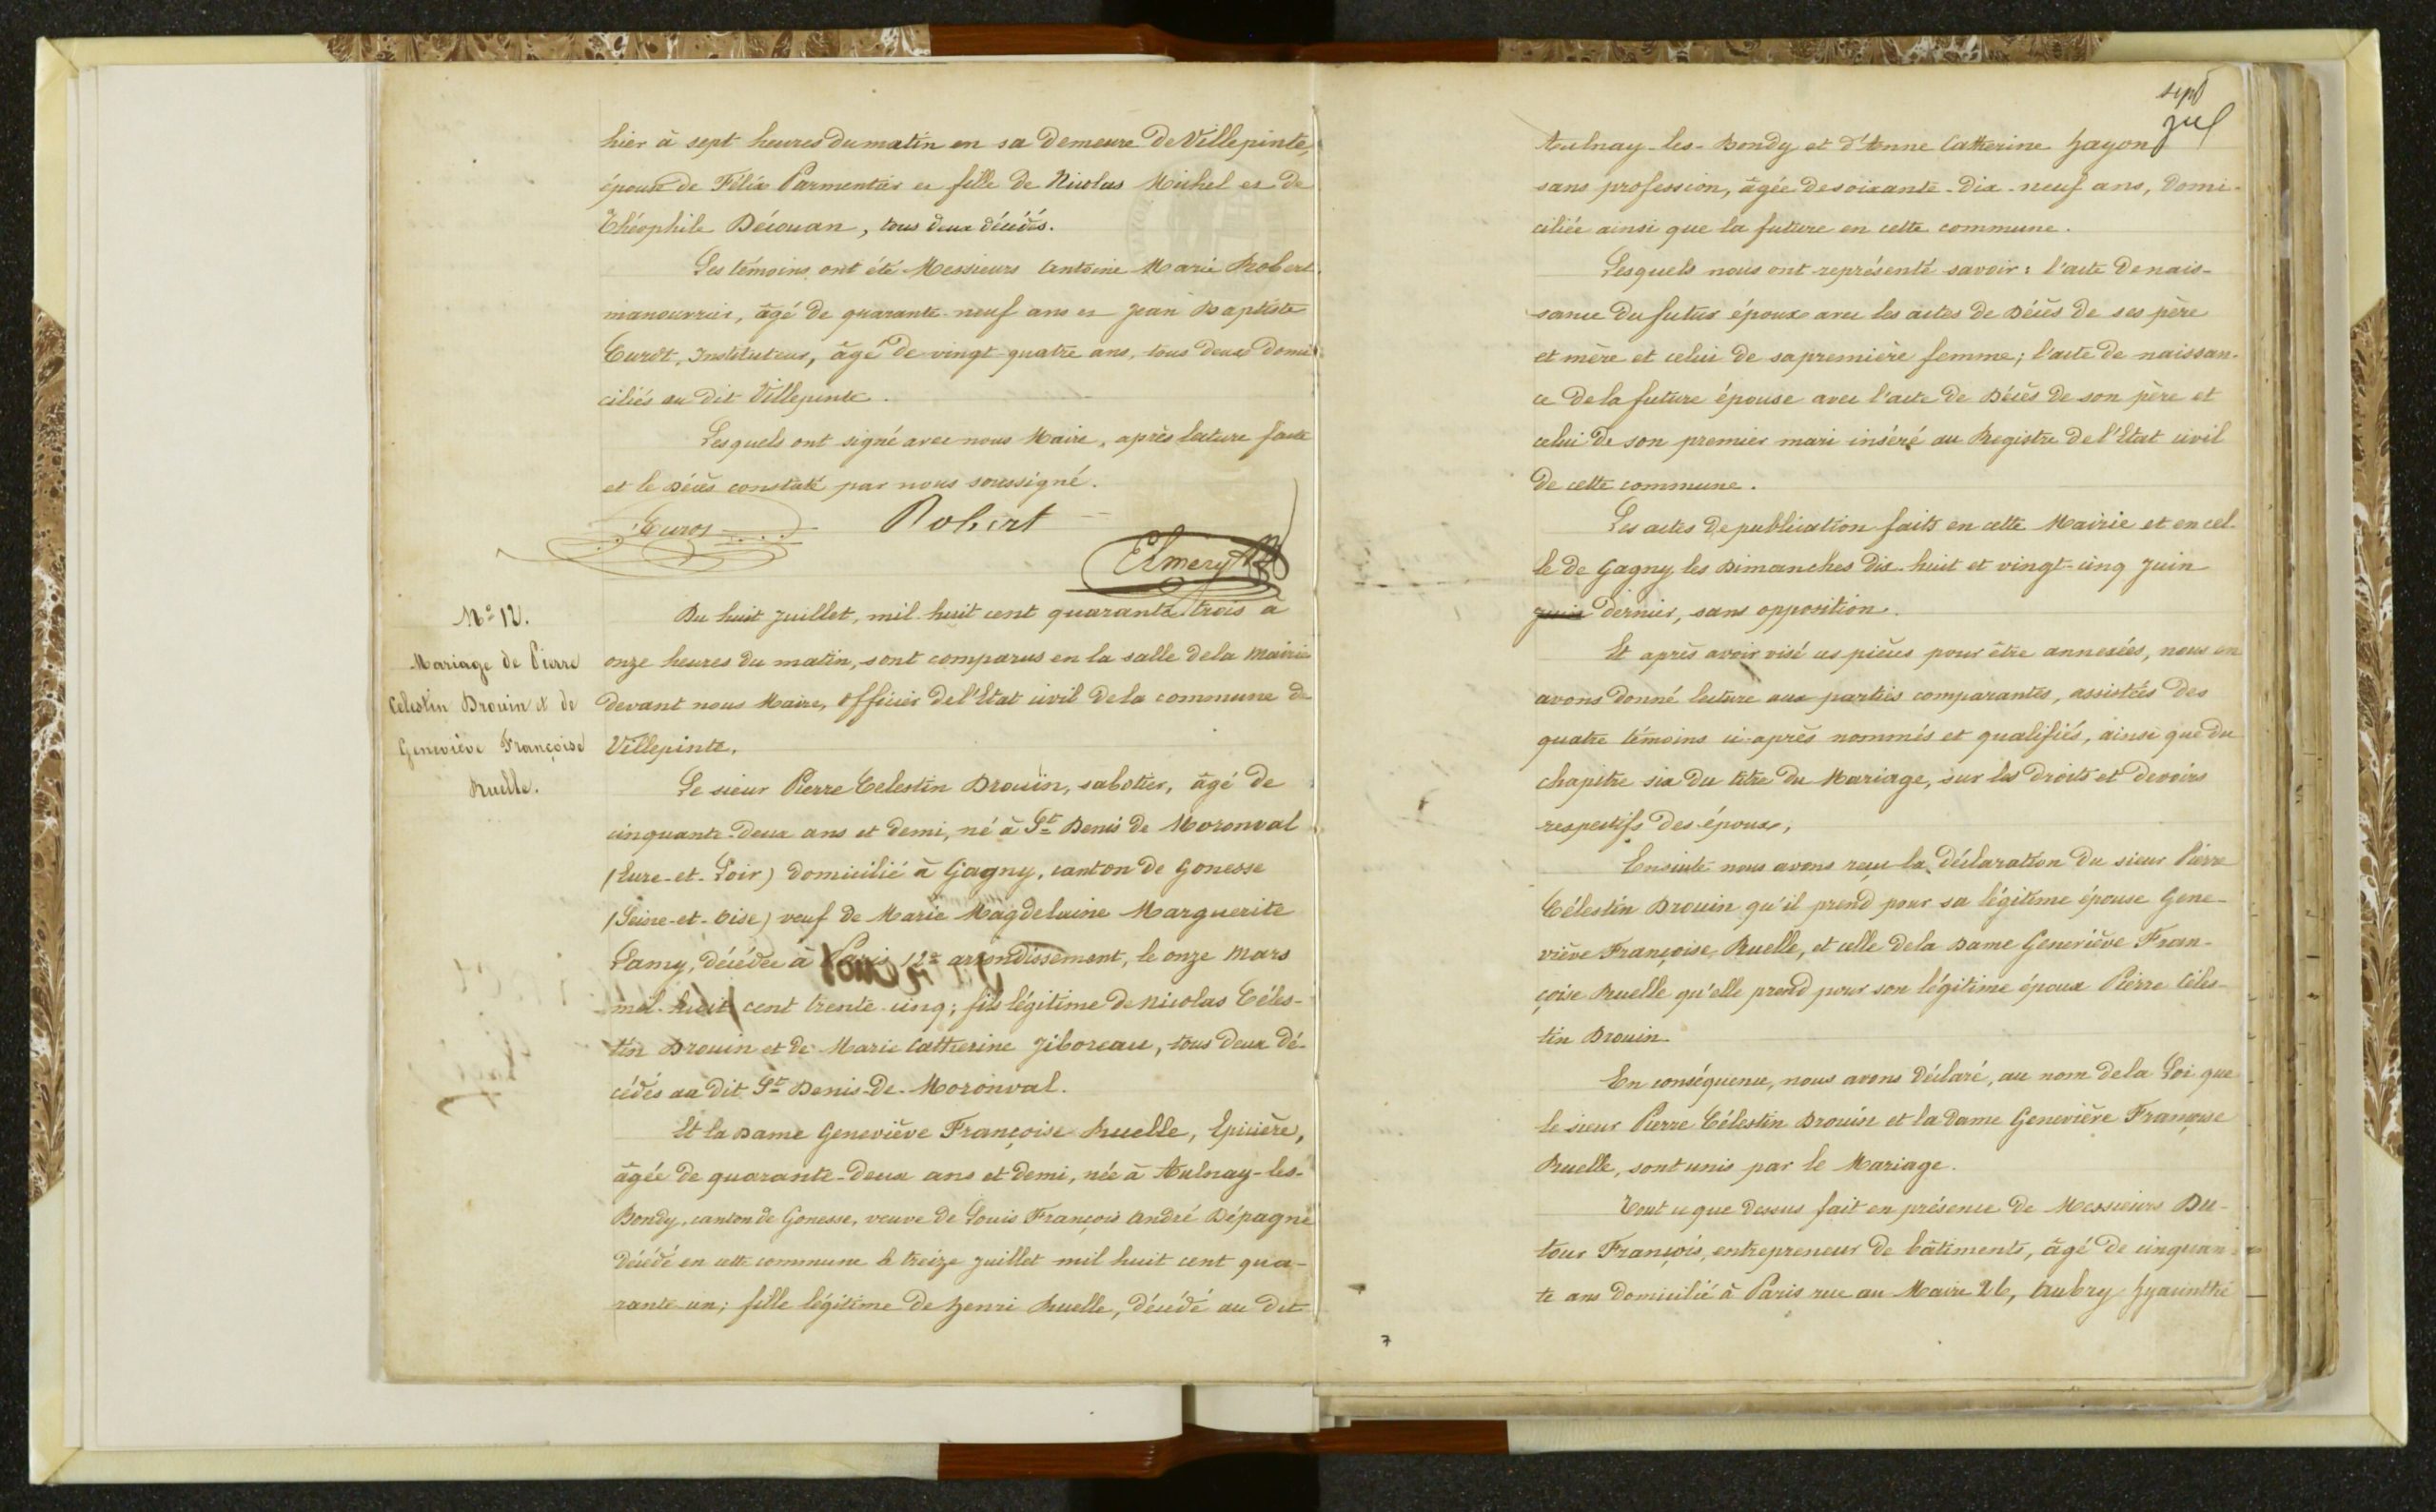 hier à sept heures du matin en sa demeure de Villepinte,
épouse de Félix Parmentier et fille de Nicolas Michel et de
Théophile Découan, tous deux décédés.
Les témoins ont été Messieurs Antoine Marie Robert
manouvrier, âgé de quarante-neuf ans et Jean Baptiste
Curôt, Instituteur, âgé de vingt quatre ans, tous deux domi
ciliés au dit Villepinte.
Lesquels ont signé avec nous Maire, après lecture faite
et le décès constaté par nous soussigné.
Curot Robert
Elmery
N° 12.
Mariage de Pierre
Celestin Drouin et de
Geneviève Françoise
Ruelle.
Du huit juillet, mil huit cent quarante-trois à
onze heures du matin, sont comparus en la salle de la mairie
devant nous Maire, officier de l'Etat civil de la commune de
Villepinte,
Le sieur Pierre Celestin Drouïn, sabotier, âgé de
cinquante-deux ans et demi, né à St Denis de Moronval
(Eure-et-Loir) domicilié à Gagny, canton de Gonesse
(Seine-et-Oise) veuf de Marie Magdelaine Marguerite
Lamy, décédée à Paris 12e arrondissement, le onze Mars
mil-huit cent trente-cinq; fils légitime de Nicolas Céles-
tin Drouin et de Marie Catherine Jiboreau, tous deux dé-
cédés au dit St Denis-de-Moronval.
Et la Dame Geneviève Françoise Ruelle, Epicière,
âgée de quarante-deux ans et demi, née à Aulnay-les-
Bondy, canton de Gonesse, veuve de Louis François André Dépagne
décédé en cette commune le treize juillet mil huit cent qua-
rante-un; fille légitime de henri Ruelle, décédé au dit
sept
Aulnay-les-Bondy et d'Anne Catherine hayon
sans profession, âgée de soixante-dix-neuf ans, domi-
ciliée ainsi que la future en cette commune.
Lesquels nous ont représenté savoir: l'acte de nais-
sance du futur époux avec les actes de décès de ses père
et mère et celui de sa première femme; l'acte de naissan-
ce de la future épouse avec l'acte de décès de son père et
celui de son premier mari inséré au Registre de l'Etat civil
de cette commune.
Les actes de publication faits en cette Mairie et en cel-
le de Gagny les Dimanches dix-huit et vingt-cinq Juin
dernier, sans opposition.
Et après avoir visé ces pièces pour être annexées, nous en
avons donné lecture aux parties comparantes, assistées des
quatre témoins ci-après nommés et qualifiés, ainsi que du
chapitre six du titre du Mariage, sur les droits et devoirs
respectifs des époux;
Ensuite nous avons reçu la déclaration du sieur Pierre
Célestin Drouin qu'il prend pour sa légitime épouse Gene-
viève Françoise Ruelle, et celle de la Dame Geneviève Fran-
çoise Ruelle qu'elle prend pour son légitime époux Pierre Céles-
tin Drouin.
En conséquence, nous avons déclaré, au nom de la Loi que
le sieur Pierre Célestin Drouin et la Dame Geneviève Françoise
Ruelle, sont unis par le Mariage.
Tout ce que dessus fait en présence de Messieurs Du-
tour François, entrepreneur de bâtiments, âgé de cinquan-
te ans domicilié à Paris rue au Maire 26, Aubry hyacinthe
7